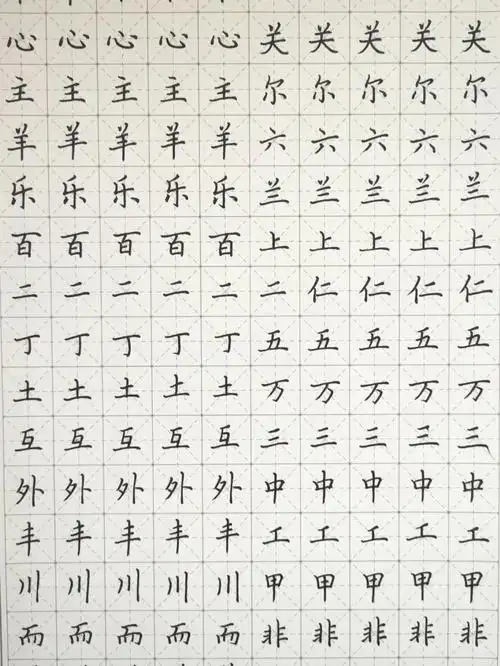 心心心心心关关关关关
主主主主主尔尔尔尔尔
羊羊羊羊羊六六六六六
乐乐乐乐乐兰兰兰兰兰
百百百百百上上上上上
二二二二二二仁仁仁仁
丁丁丁丁丁五五五五五
土土土土土万万万万万
互互互互互三三三三三
外外外外外中中中中中
丰丰丰丰丰工工工工工
川川川川川甲甲甲甲甲
而而而而而非非非非非